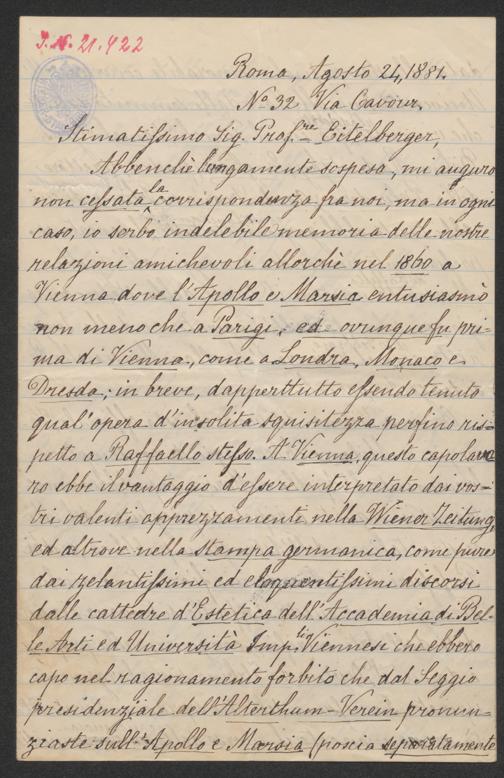 J. N. 21.422
Roma, Agosto 24, 1881.
No 32 Via Cavour.
Stimatissimo Sig. Prof.re Eitelberger,
Abbenchè lungamente sospesa, mi auguro
non cessata la corrispondenza fra noi, ma in ogni
caso, io serbo indelebile memoria delle nostre
relazioni amichevoli allorchè nel 1860 a
Vienna dove l'Apollo e Marsia entusiasmò
non meno che a Parigi, ed ovunque fu pri-
ma di Vienna, come a Londra, Monaco e
Dresda; in breve, dapperttutto essendo tenuto
qual'opera d'insolita squisitezza perfino ris-
petto a Raffaello stesso. A Vienna questo capolavo
ro ebbe il vantaggio d'essere interpretato dai vos-
tri valenti apprezzamenti nella Wiener Zeitung,
ed altrove nella stampa germanica, come pure
dai zelantissimi ed eloquentissimi discorsi
dalle cattedre d'Estetica dell'Accademia di Bel-
le Arti ed Università Imp.li Viennesi che ebbero
capo nel ragionamento forbito che dal Seggio
presidenziale dell'Alterthum-Verein pronun-
ziaste sull'Apollo e Marsia (poscia separatamente